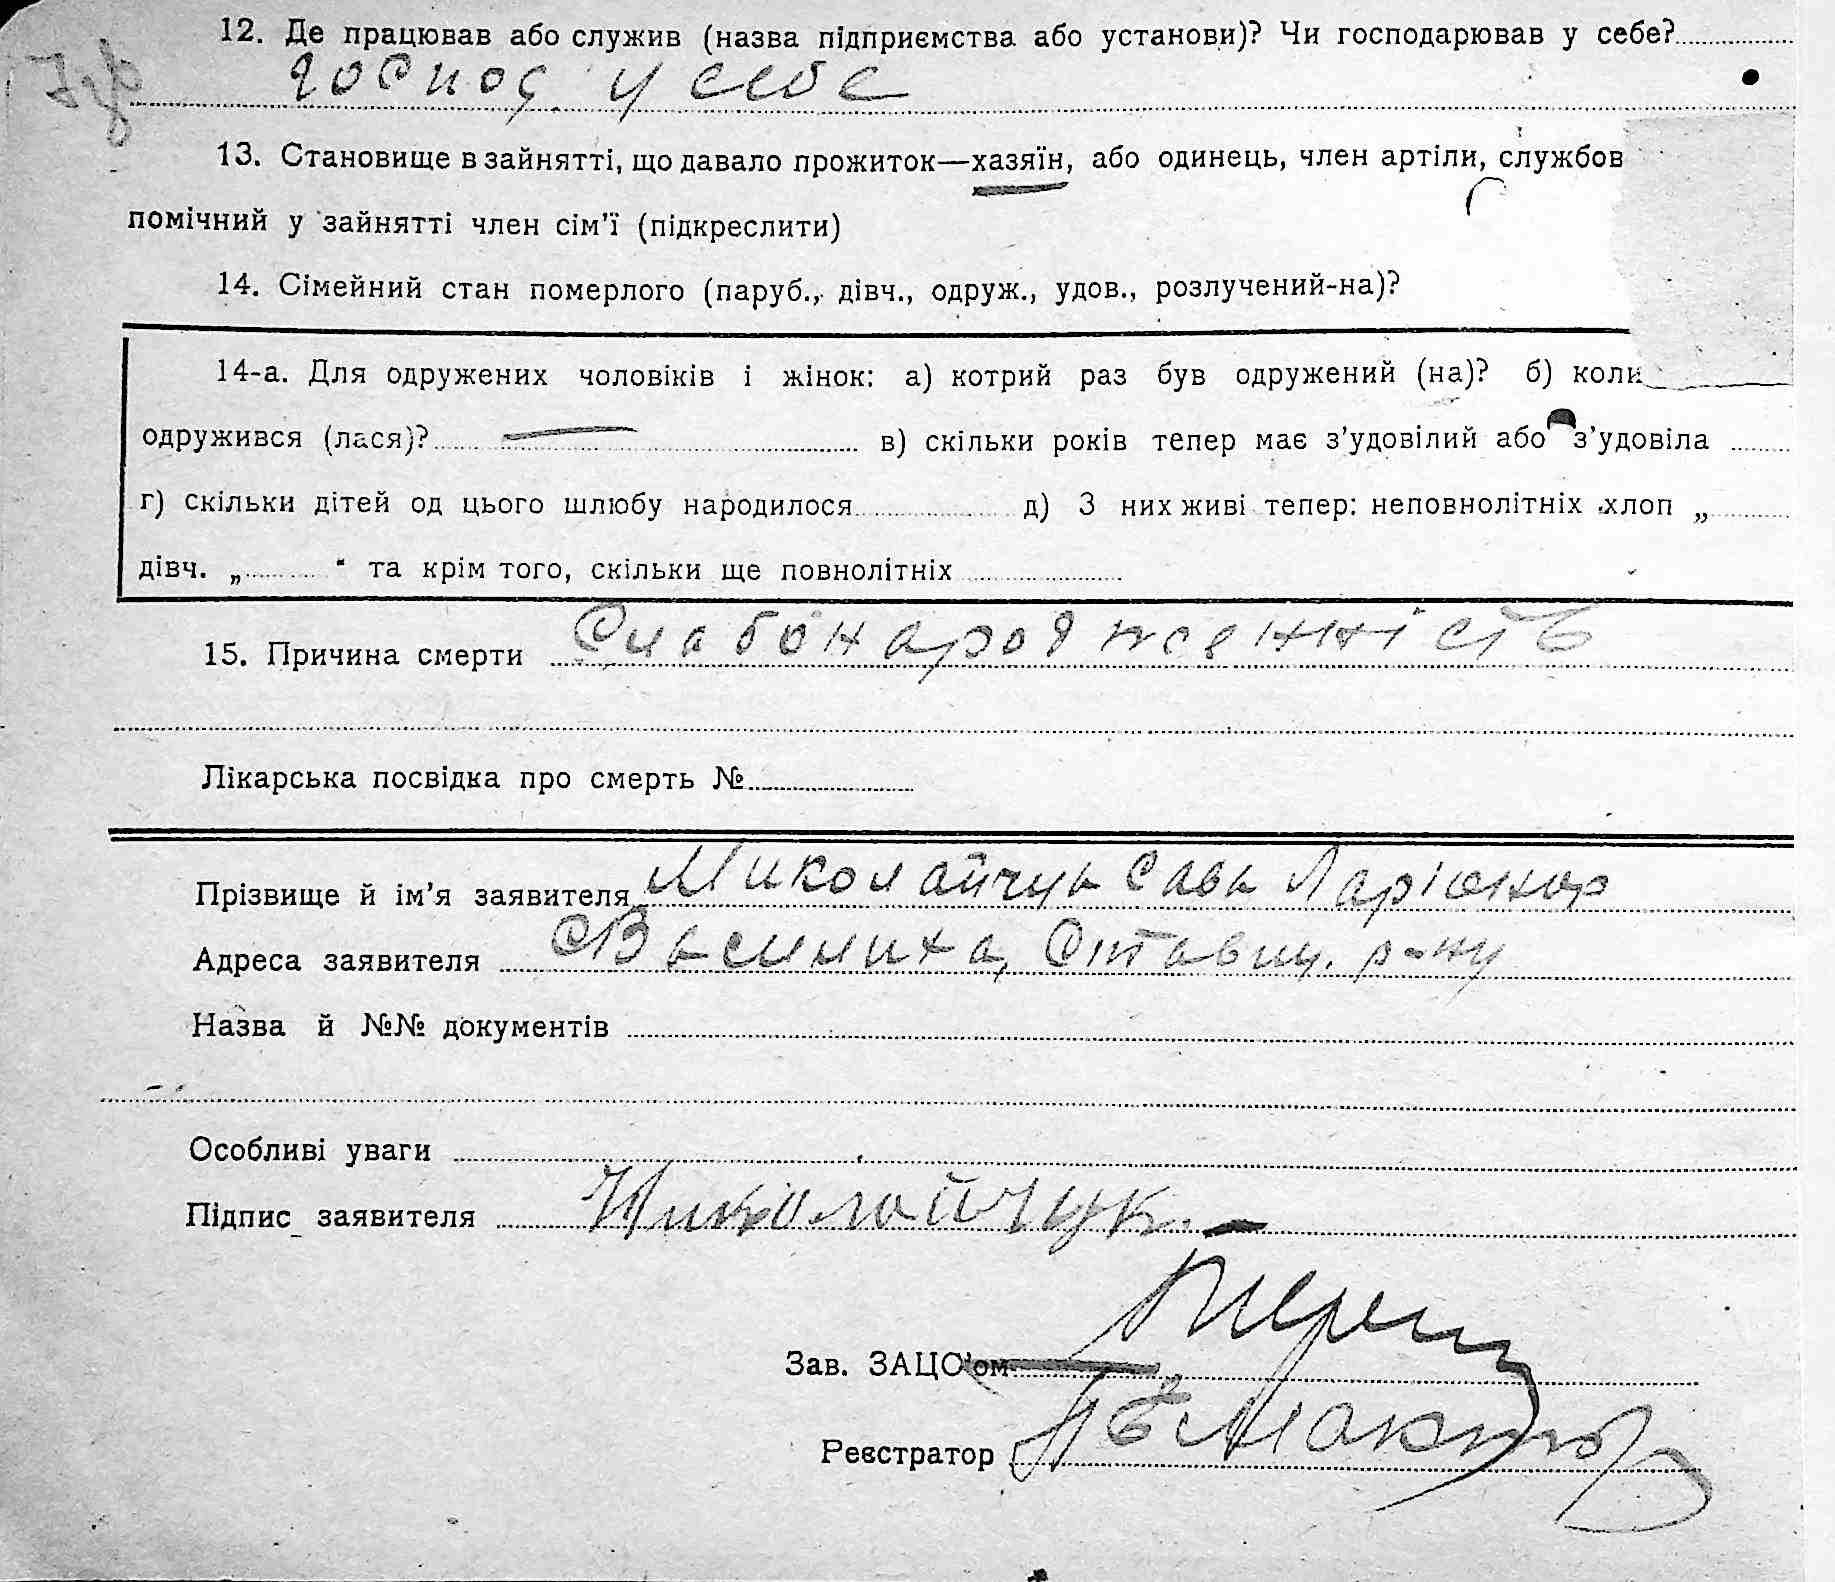 12. Де працював або служив (назва підприємства або установи)? Чи господарював у себе?
господ. у себе
13. Становище в зайнятті, що давало прожиток—хазяїн, або одинець, член артіли, службов
помічний у зайнятті член сім'ї (підкреслити)
14. Сімейний стан померлого (паруб., дівч., одруж., удов., розлучений-на)?
14-а. Для одружених чоловіків і жінок: а) котрий раз був одружений (на)? б) коли
одружився (лася)? — в) скільки років тепер має з'удовілий або з'удовіла
г) скільки дітей од цього шлюбу народилося д) З них живі тепер: неповнолітніх хлоп „
дівч. „ “ та крім того, скільки ще повнолітніх
15. Причина смерти Слабонародженність
Лікарська посвідка про смерть №
Прізвище й ім'я заявителя Миколайчук Сава Ларіонов
Адреса заявителя с Василиха, Ставищ. р-ну
Назва й №№ документів
Особливі уваги
Підпис заявителя Николайчук.
Зав. ЗАЦС'ом
Реєстратор